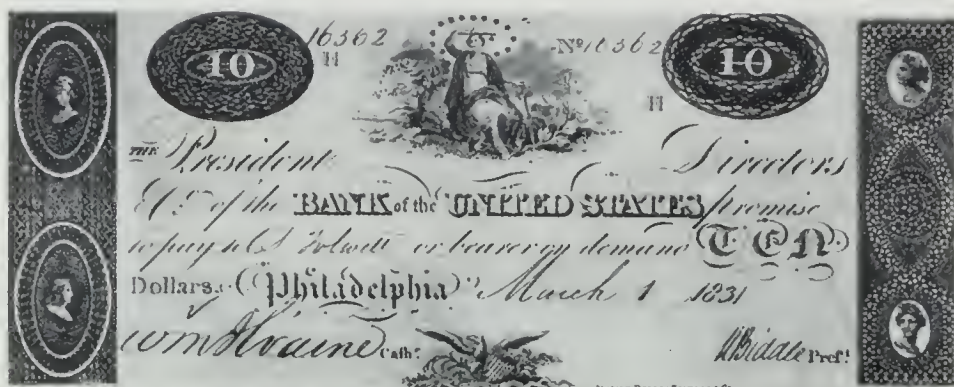 16362 Nº 16362
10 H H 10
THE President Directors
&Cº. of the BANK of the UNITED STATES promise
to pay to or bearer on demand TEN
Dollars. (Philadelphia) March 1 1831
Wm McIlvaine Cashr. N Biddle Prest.